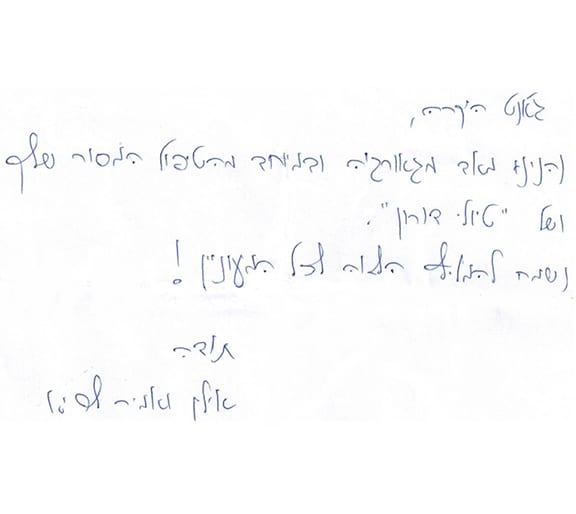 ג'אנט היקרה,
נהנינו מאד מגאורגיה ובמיוחד מהטיפול המסור שלך
ושל "טיולי דורון".
נשמח להמליץ הלאה לכל המעוניין!
תודה
אילן ומאירה